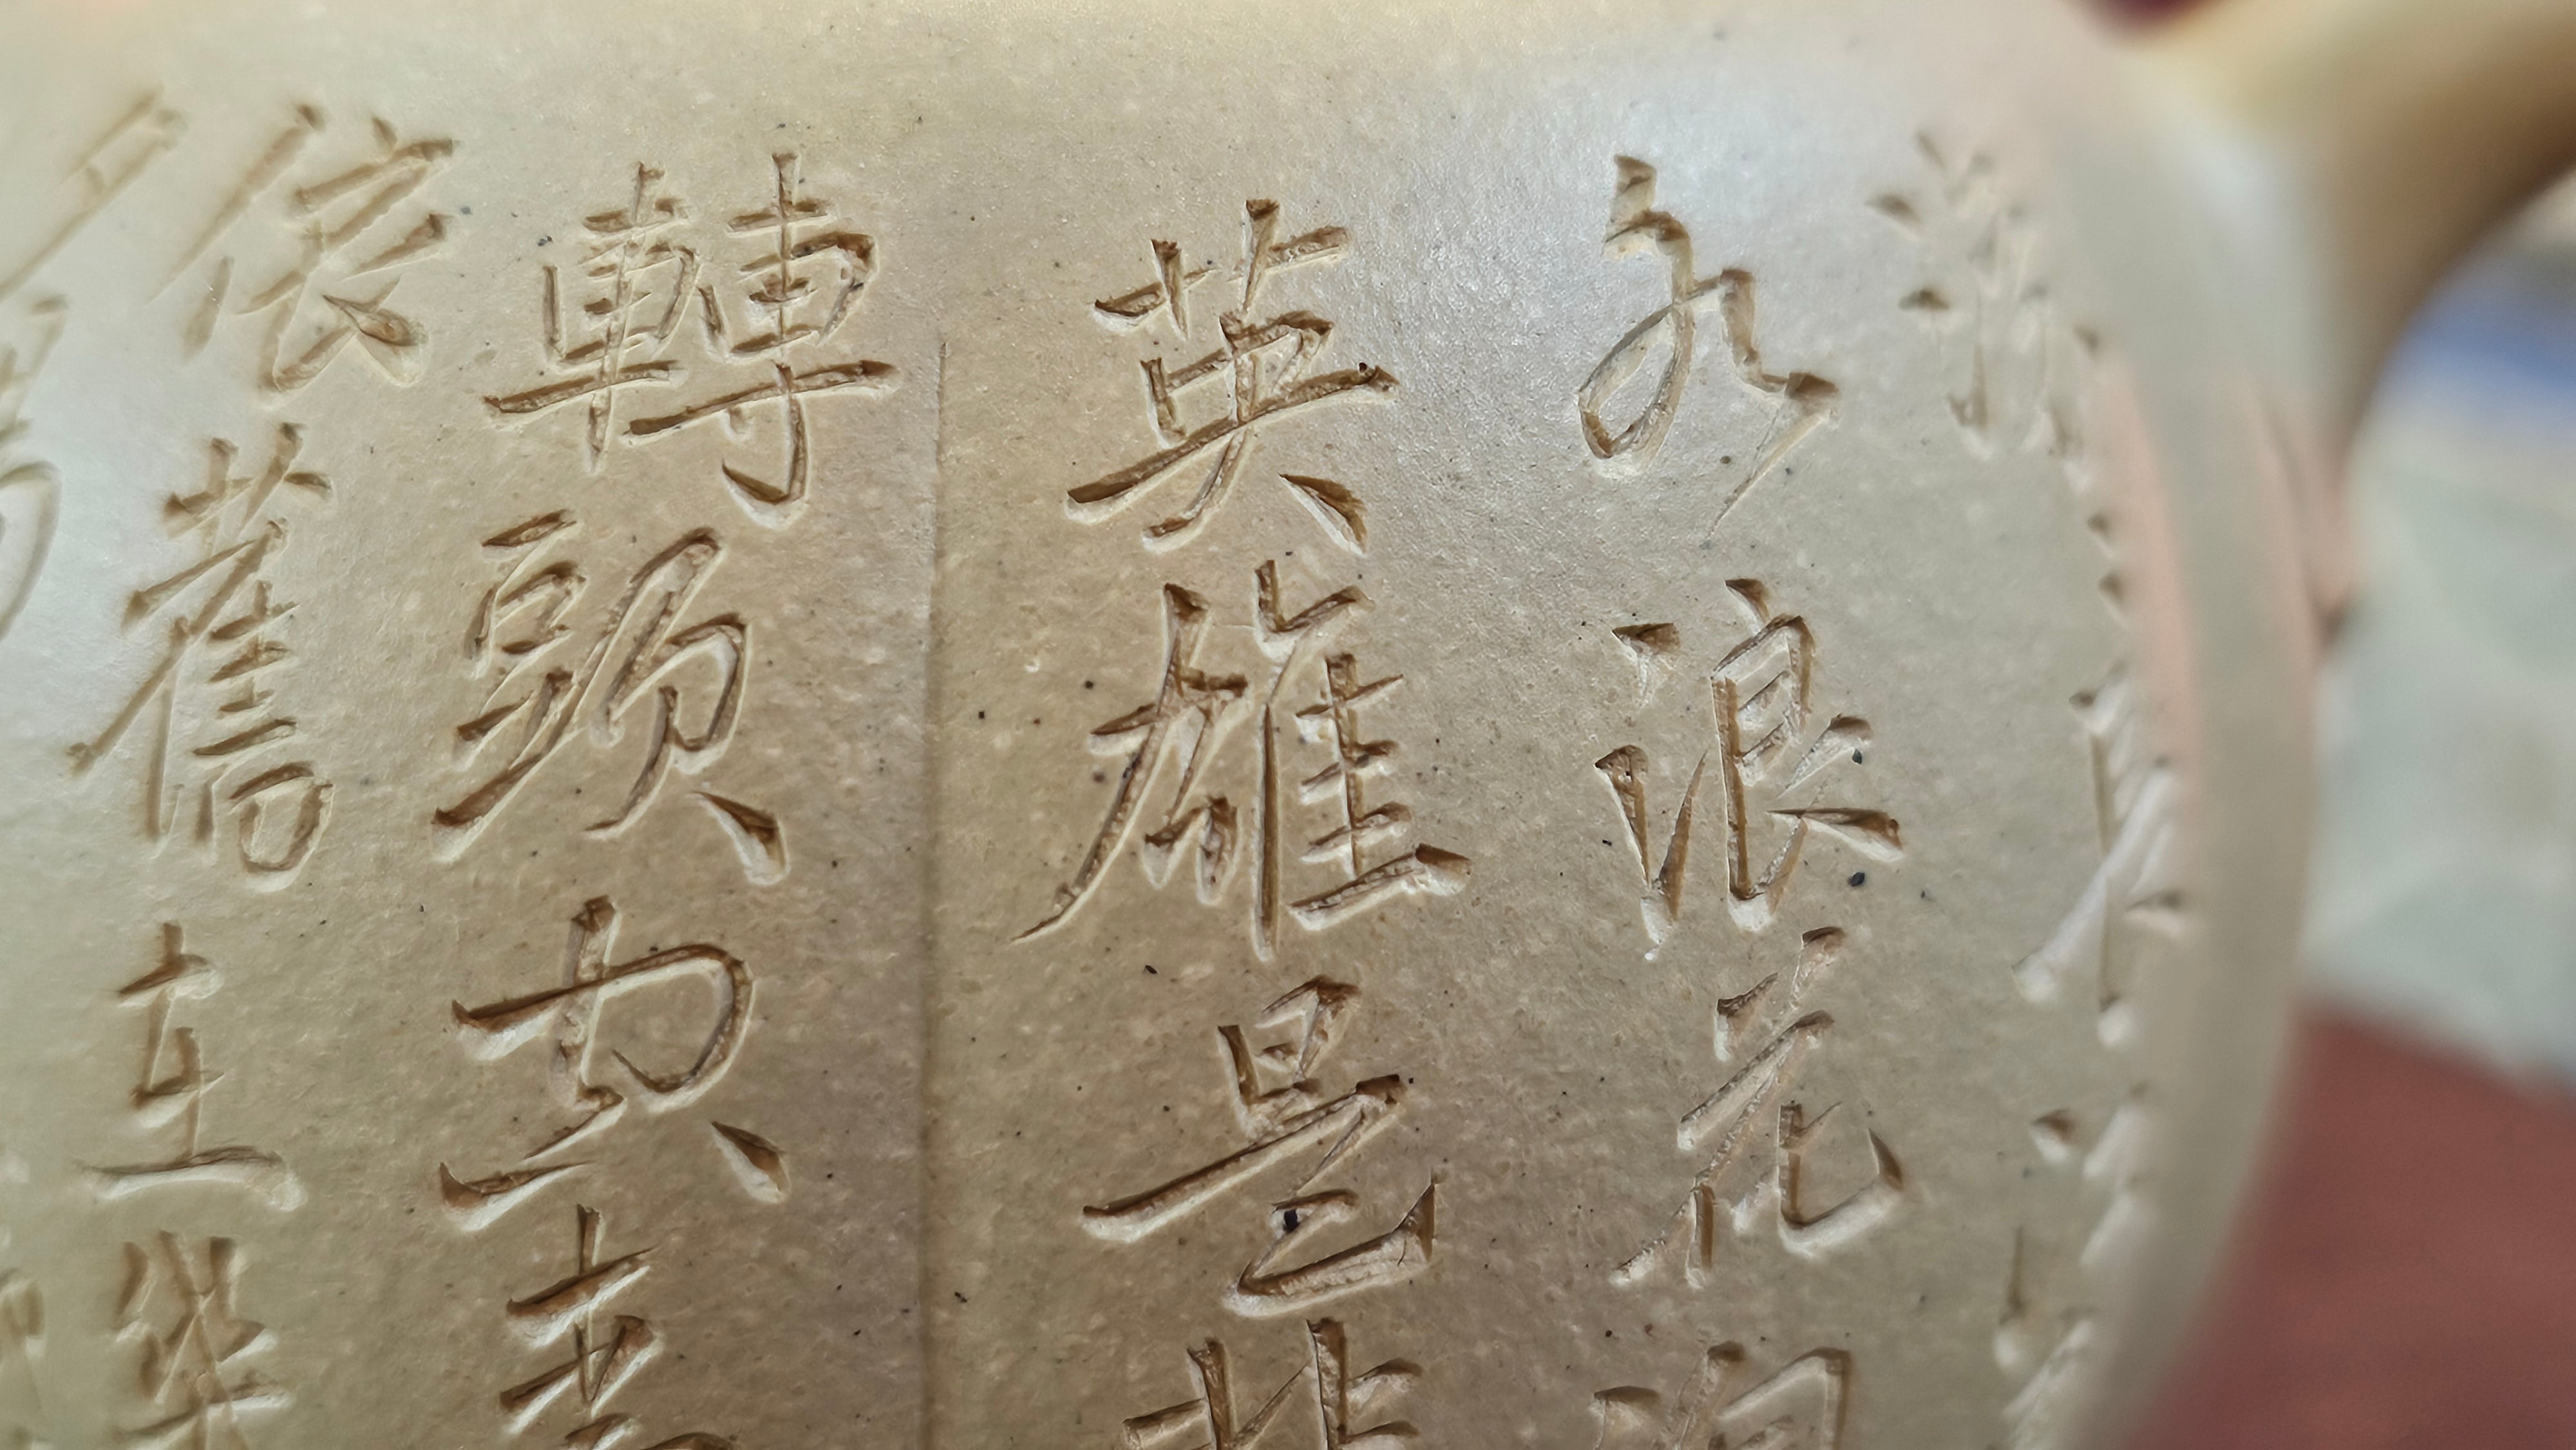 水浪花淘
英雄是非
轉頭空青
依舊在幾